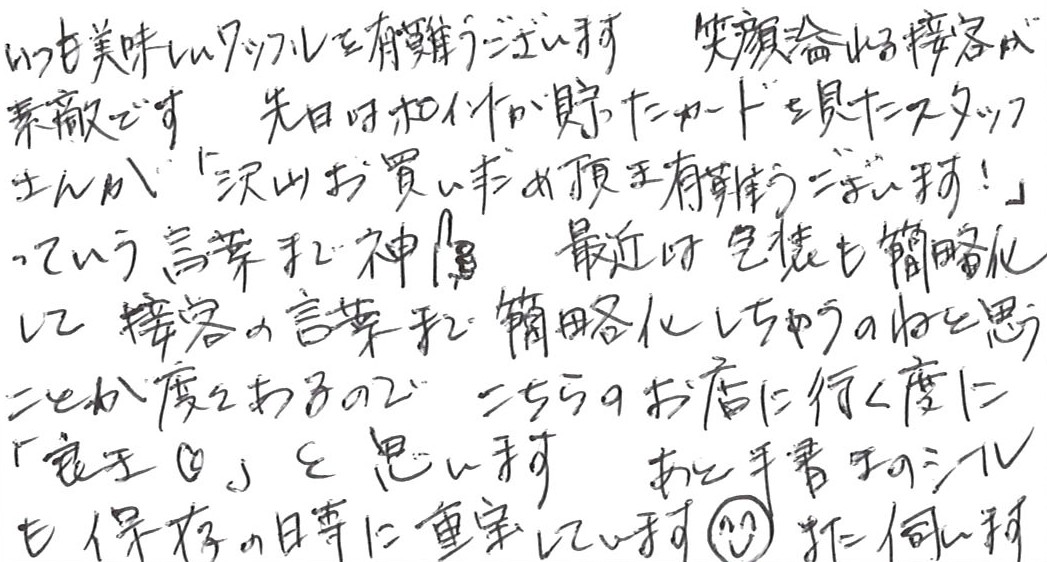 いつも美味しいワッフルを有難うございます 笑顔溢れる接客が
素敵です 先日はポイントが貯ったカードを見たスタッフ
さんが「沢山お買いだめ頂き有難うございます!」
っていう言葉まで神 最近は包装も簡略化
して接客の言葉まで簡略化しちゃうのねと思う
ことが度々あるので こちらのお店に行く度に
「良き」と思います あと手書きのシール
も保存の時に重宝しています また伺います